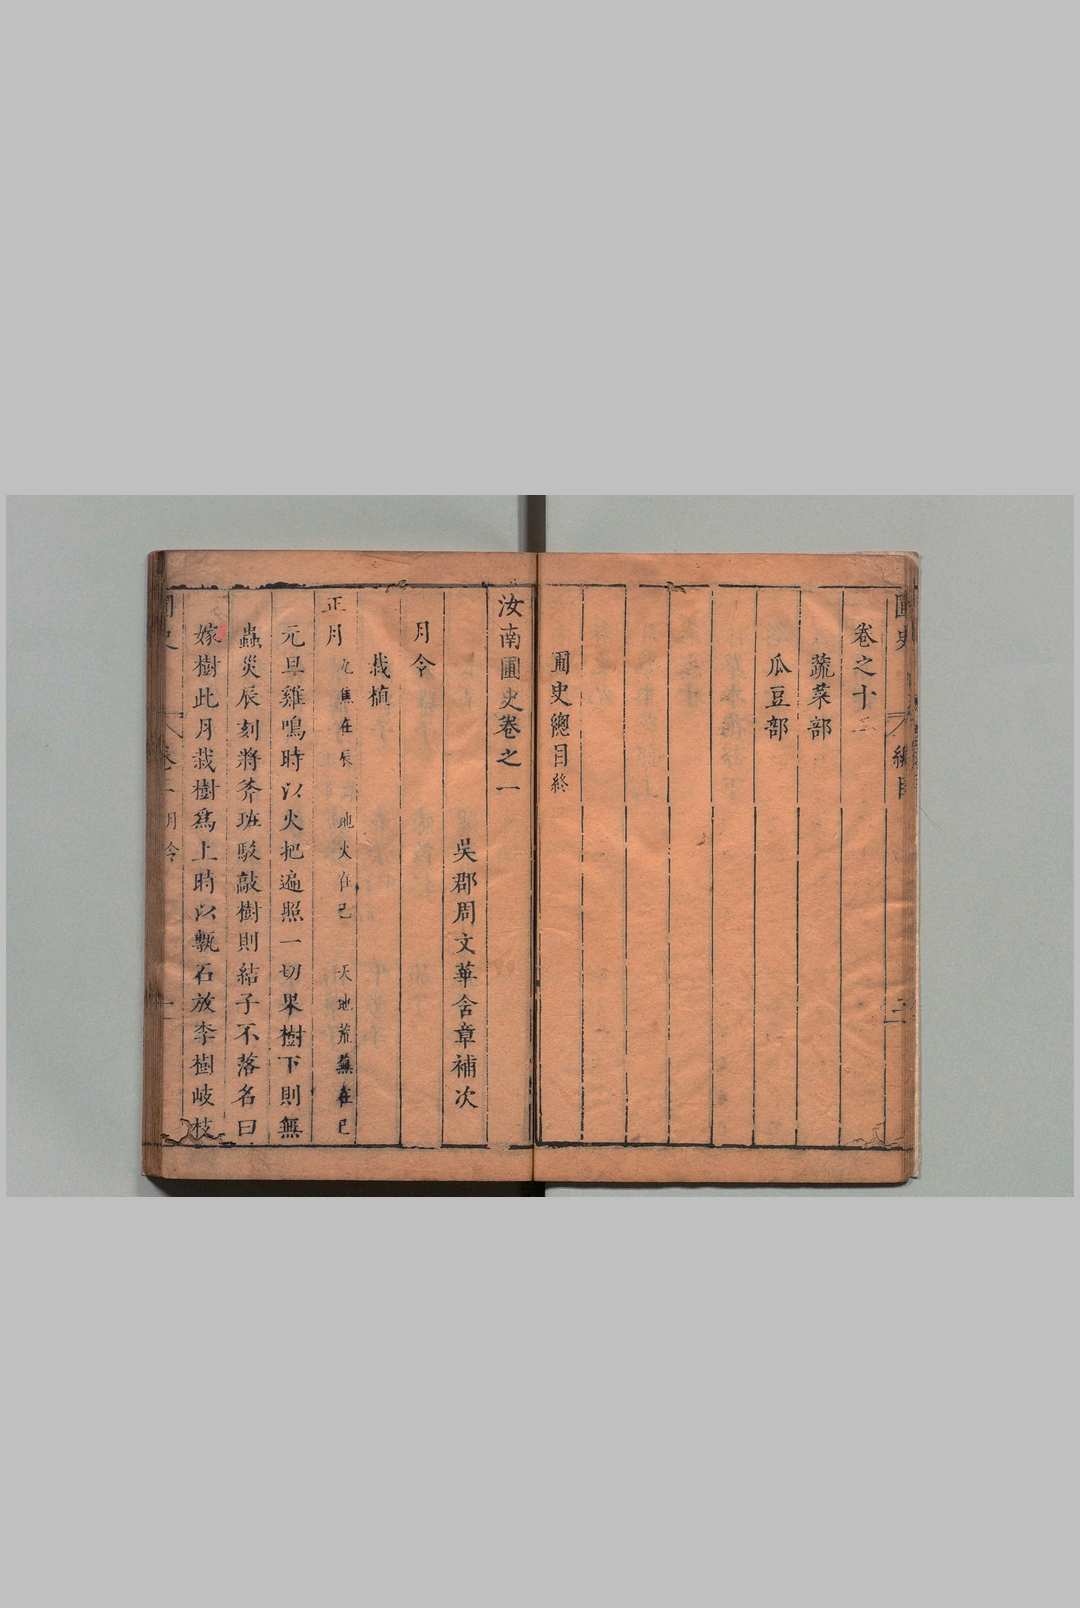 圃史
總目
卷之十二
蔬菜部
瓜豆部
圃史總目終
汝南圃史卷之一
吳郡周文華含章補次
月令
栽植
正月 九焦在辰 地火在巳 天地荒蕪在巳
元旦雞鳴時以火把遍照一切果樹下則無
蟲災辰刻將斧班駁敲樹則結子不落名曰
嫁樹此月栽樹爲上時以甎石放李樹岐枝
卷一 月令 一